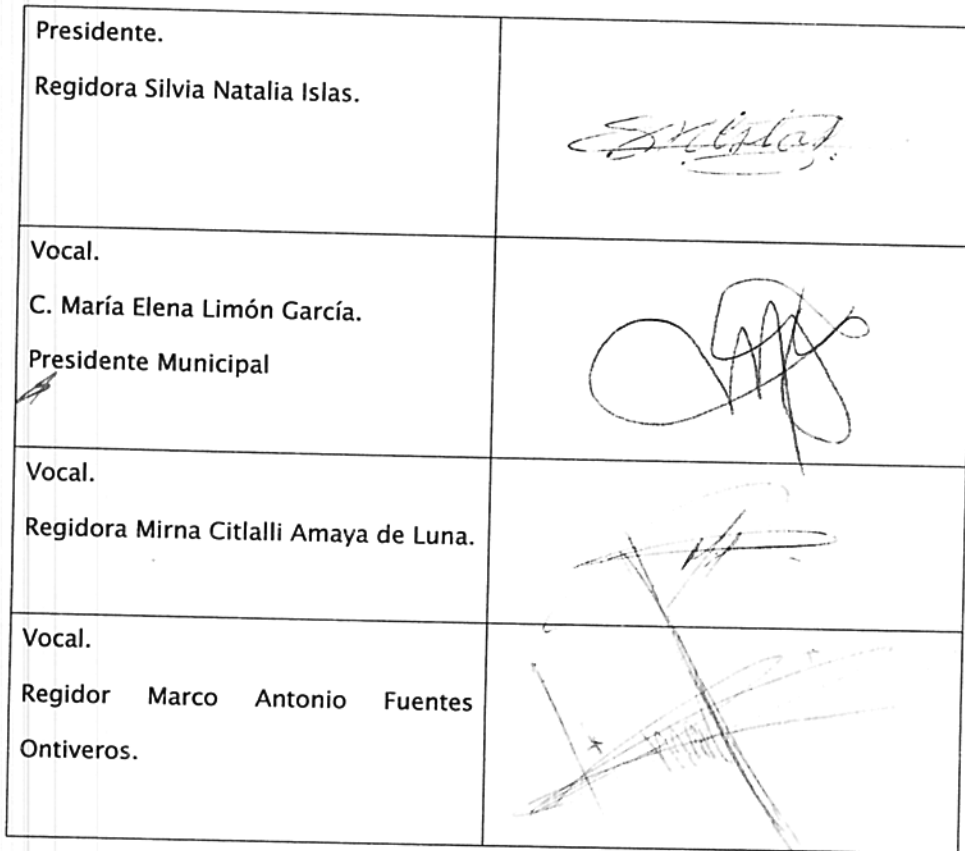 Presidente.
Regidora Silvia Natalia Islas.
Vocal.
C. María Elena Limón García.
Presidente Municipal
Vocal.
Regidora Mirna Citlalli Amaya de Luna.
Vocal.
Regidor Marco Antonio Fuentes
Ontiveros.